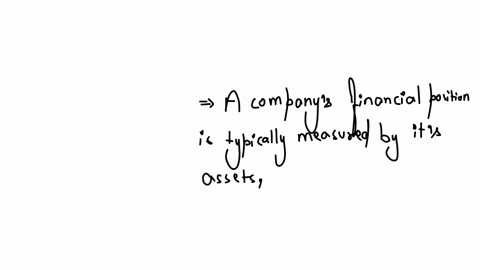 ⇒ A company's financial position
is typically measured by it's
assets,